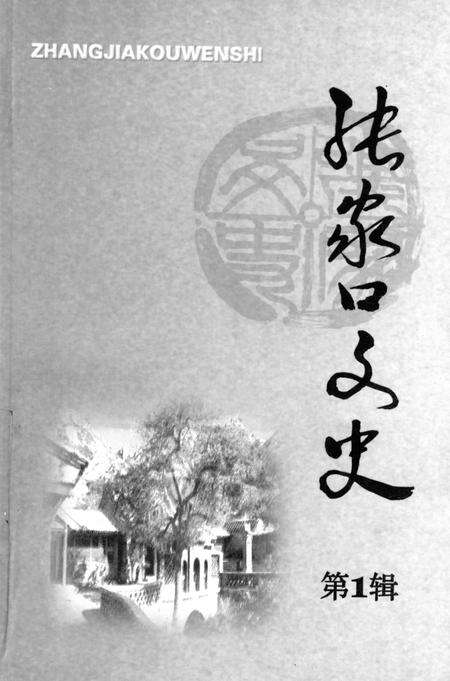 ZHANGJIAKOUWENSHI
张家口文史
第1辑